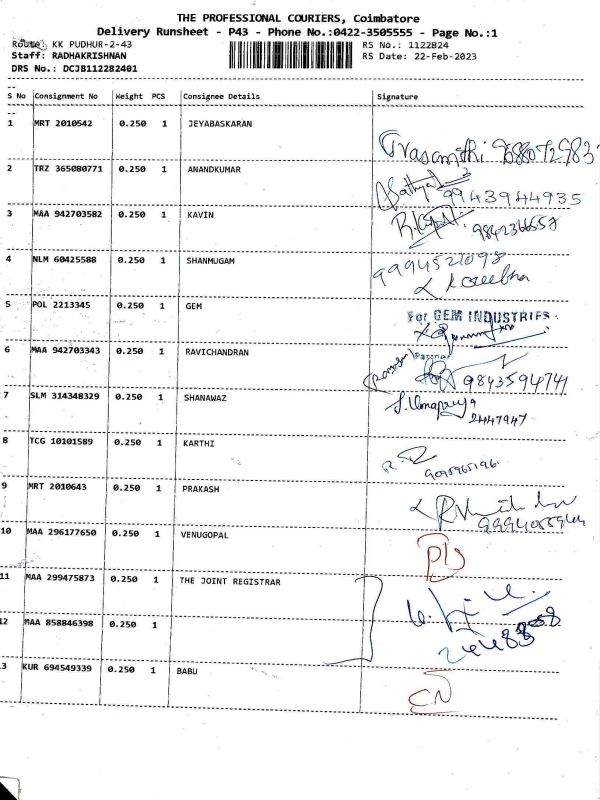 THE PROFESSIONAL COURIERS, Coimbatore
Delivery Runsheet - P43 - Phone No.:0422-3505555 - Page No.:1
Route: KK PUDHUR-2-43 RS No.: 1122824
Staff: RADHAKRISHNAN RS Date: 22-Feb-2023
DRS No.: DCJB112282401
S No Consignment No Weight PCS Consignee Details Signature
1 MRT 2010542 0.250 1 JEYABASKARAN
2 TRZ 365080771 0.250 1 ANANDKUMAR 9943944935
3 MAA 942703582 0.250 1 KAVIN 9842366557
4 NLM 60425588 0.250 1 SHANMUGAM
5 POL 2213345 0.250 1 GEM For GEM INDUSTRIES
Partner
6 MAA 942703343 0.250 1 RAVICHANDRAN 9843594741
7 SLM 314348329 0.250 1 SHANAWAZ 2447947
8 TCG 10101589 0.250 1 KARTHI
9 MRT 2010643 0.250 1 PRAKASH
10 MAA 296177650 0.250 1 VENUGOPAL
11 MAA 299475873 0.250 1 THE JOINT REGISTRAR
12 MAA 858846398 0.250 1
3 KUR 694549339 0.250 1 BABU CN